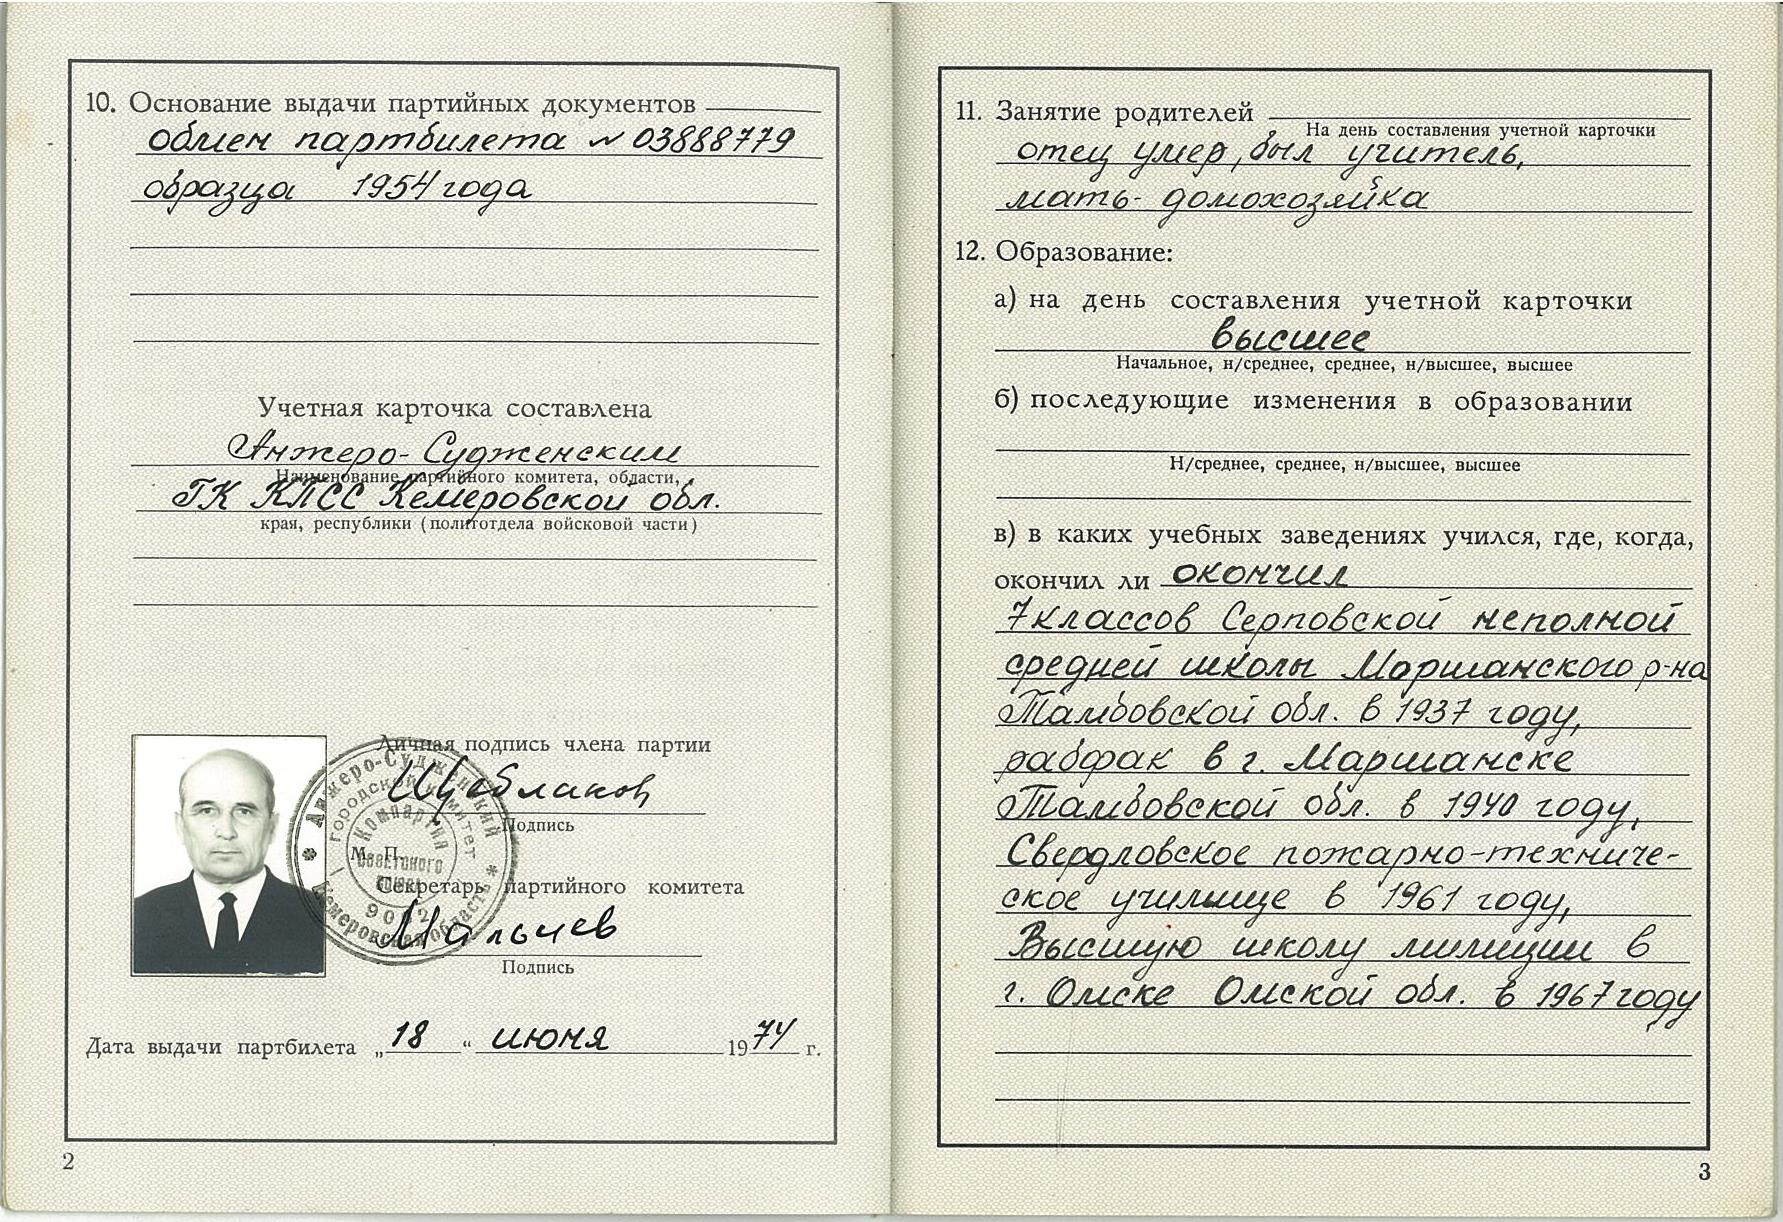 10. Основание выдачи партийных документов
обмен партбилета № 03888779
образца 1954 года
Учетная карточка составлена
Анжеро-Судженским
Наименование партийного комитета, области,
ГК КПСС Кемеровской обл.
края, республики (политотдела войсковой части)
Личная подпись члена партии
Подпись
М. П.
Секретарь партийного комитета
Мальцев
Подпись
Анжеро-Судженский
городской комитет
Компартия
Советского
Союза
Кемеровская область
Дата выдачи партбилета „18“ июня 1974 г.
2
11. Занятие родителей
На день составления учетной карточки
отец умер, был учитель,
мать- домохозяйка
12. Образование:
а) на день составления учетной карточки
высшее
Начальное, н/среднее, среднее, н/высшее, высшее
б) последующие изменения в образовании
Н/среднее, среднее, н/высшее, высшее
в) в каких учебных заведениях учился, где, когда,
окончил ли окончил
7 классов Серповской неполной
средней школы Моршанского р-на
Тамбовской обл. в 1937 году,
рабфак в г. Маршанске
Тамбовской обл. в 1940 году,
Свердловское пожарно-техниче-
ское училище в 1961 году,
Высшую школу милиции в
г. Омске Омской обл. в 1967 году
3